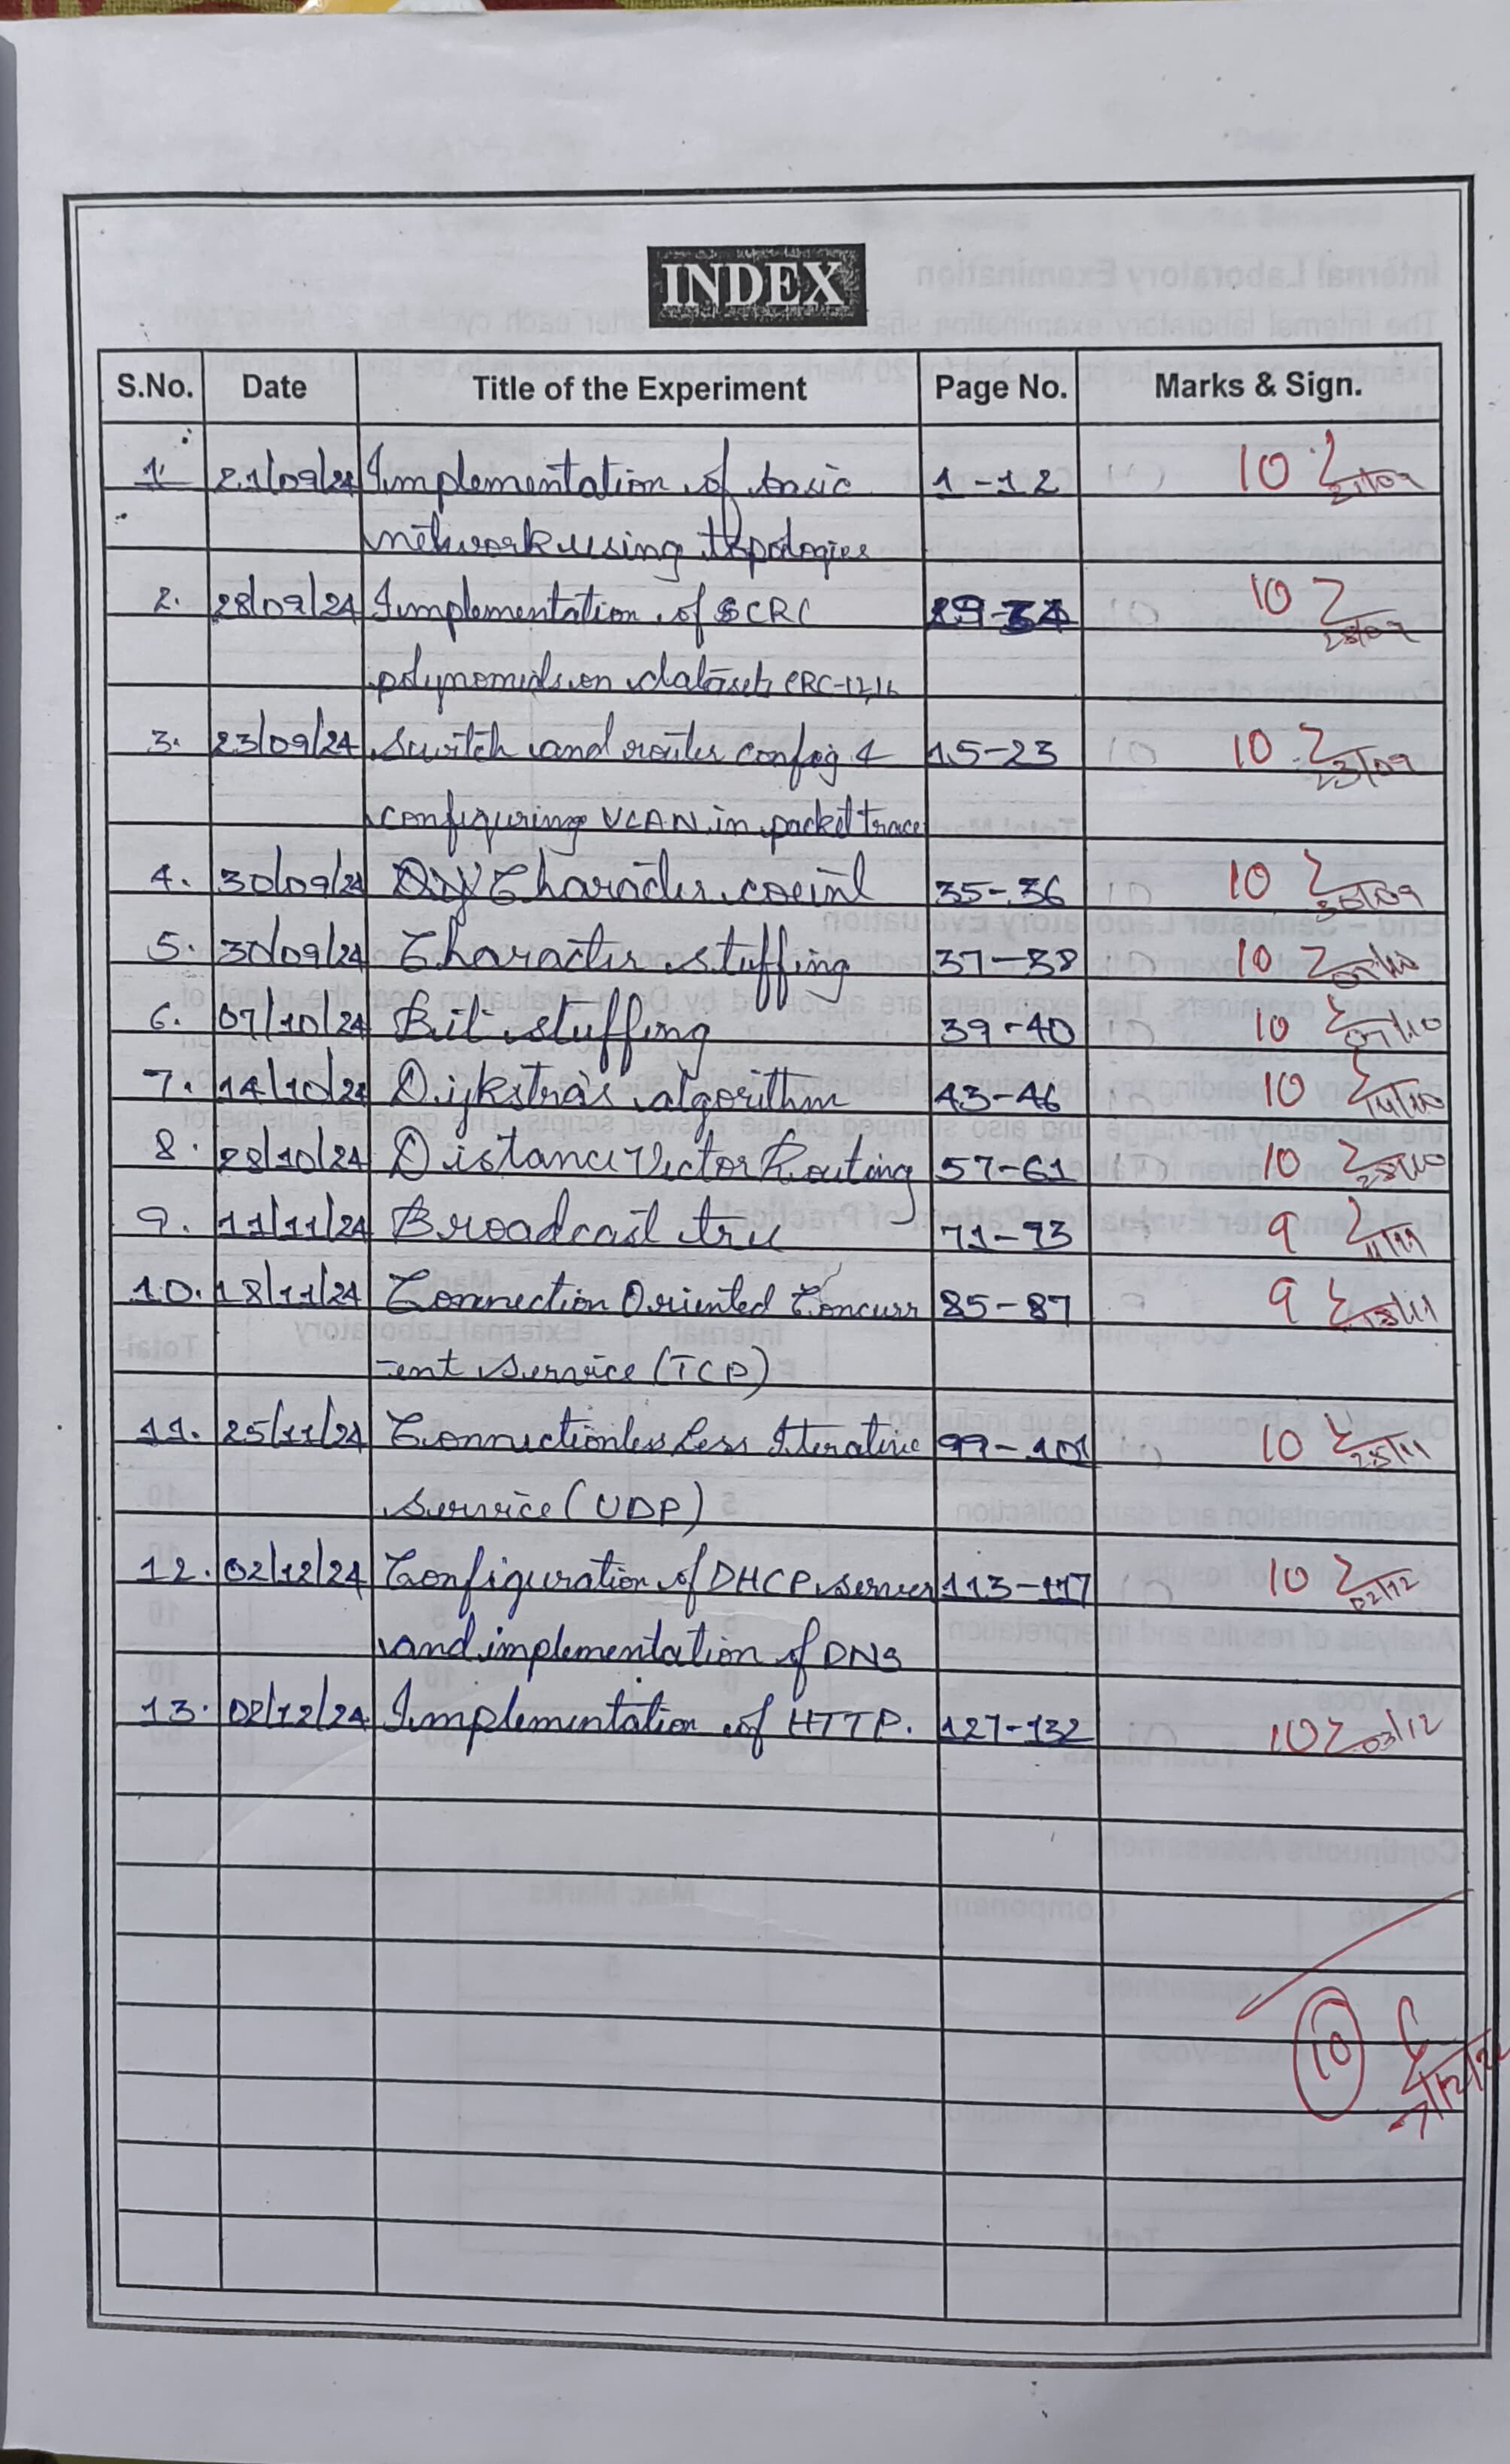 INDEX
S.No. Date Title of the Experiment Page No. Marks & Sign.
1. 21/09/24 Implementation of basic 1-12 10 21/09
network using topologies
2. 28/09/24 Implementation of CRC 10 28/09
polynomials on datasets CRC-12,16
3. 23/09/24 Switch and router config & 15-23 10 23/09
configuring VLAN in packet trace
4. 30/09/24 Character count 35-36 10 30/09
5. 30/09/24 Character stuffing 37-38 10
6. 07/10/24 Bit stuffing 39-40 10 07/10
7. 14/10/24 Dijkstra's algorithm 43-46 10 14/10
8. 28/10/24 Distance Vector Routing 57-61 10 28/10
9. 11/11/24 Broadcast tree 71-73 9 11/11
10. 18/11/24 Connection Oriented Concurr 85-87 9 18/11
-ent Service (TCP)
11. 25/11/24 Connectionless Less Iterative 99-101 10 25/11
Service (UDP)
12. 02/12/24 Configuration of DHCP server 113-117 10 02/12
and implementation of DNS
13. 02/12/24 Implementation of HTTP. 127-132 10 03/12
10